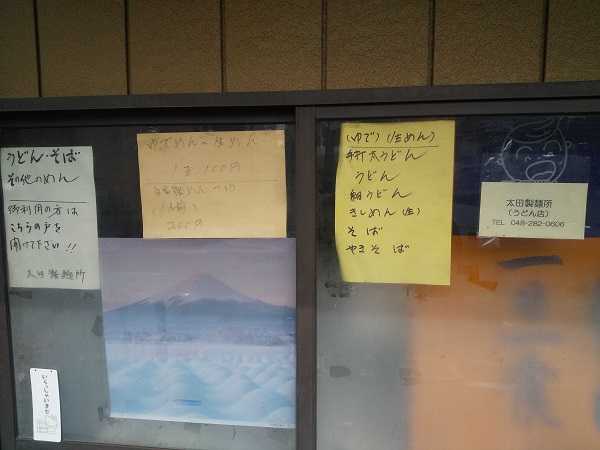 うどん・そば
その他のめん
御利用の方は
こちらの戸を
開けて下さい!!
太田製麺所
いらっしゃいませ
ゆでめん
1玉100円
(1人前)
200円
(ゆで) (生めん)
手打太うどん
うどん
細うどん
きしめん(生)
そば
やきそば
太田製麺所
(うどん店)
TEL 048-282-0606